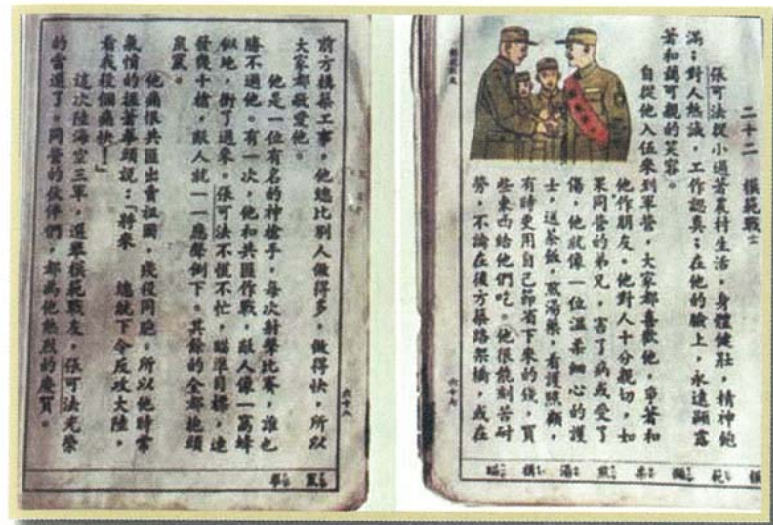 二十二　模範戰士
張可法從小過著農村生活，身體健壯，精神飽
滿；對人熱誠，工作認真；在他的臉上，永遠顯露
著和藹可親的笑容。
自從他入伍來到軍營，大家都喜歡他，爭著和
他作朋友。他對人十分親切，如
果同營的弟兄，害了病或受了
傷，他就像一位溫柔細心的護
士，送茶飯，煎湯藥，看護照顧，
有時更用自己節省下來的錢，買
些東西給他們吃。他很能刻苦耐
勞，不論在後方築路架橋，或在
六十七
模 範 藥 煎 湯 構 瞄
前方構築工事，他總比別人做得多，做得快，所以
大家都敬愛他。
他是一位有名的神槍手，每次射擊比賽，誰也
勝不過他。有一次，他和共匪作戰，敵人像一窩蜂
似地，衝了過來。張可法不慌不忙，瞄準目標，連
發幾十槍，敵人就一一應聲倒下。其餘的全都抱頭
鼠竄。
他痛恨共匪出賣祖國，殘殺同胞，所以他時常
氣憤的握著拳頭說：「將來　總統下令反攻大陸，
看我殺個痛快！」
這次陸海空三軍，選舉模範戰友，張可法光榮
的當選了。同營的伙伴們，都為他熱烈的慶賀。
六十八
竄 舉